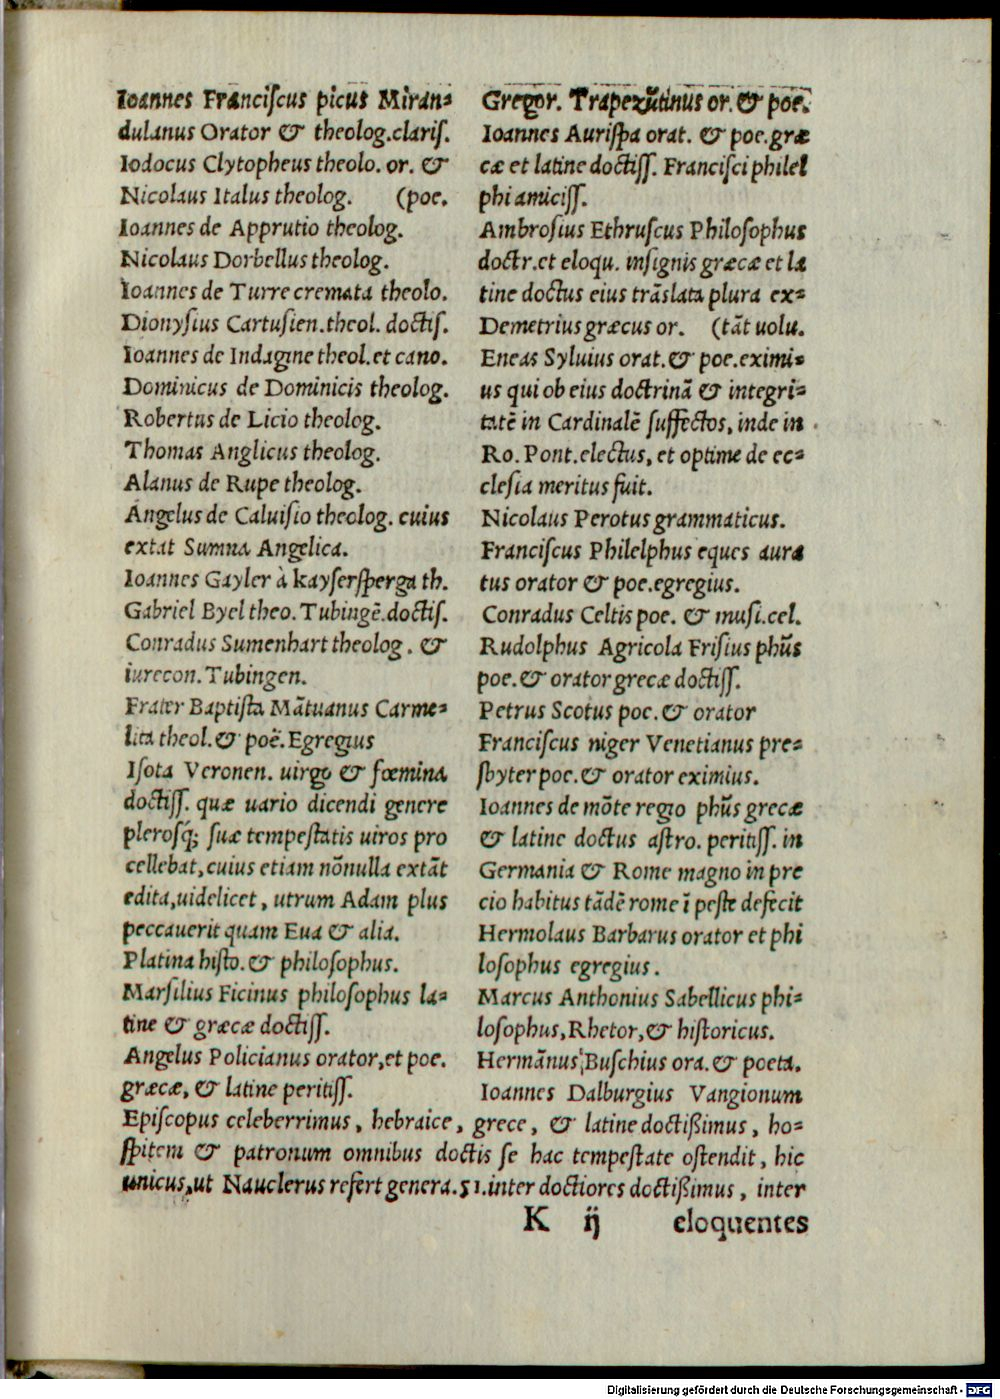 Ioannes Franciſcus picus Miran⸗
dulanus Orator & theolog.clariſ.
Iodocus Clytopheus theolo. or. &
Nicolaus Italus theolog. (poe.
Ioannes de Apprutio theolog.
Nicolaus Dorbellus theolog.
Ioannes de Turre cremata theolo.
Dionyſius Cartuſien.theol. doctiſ.
Ioannes de Indagine theol.et cano.
Dominicus de Dominicis theolog.
Robertus de Licio theolog.
Thomas Anglicus theolog.
Alanus de Rupe theolog.
Angelus de Caluiſio theolog. cuius
extat Summa Angelica.
Ioannes Gayler à kayſerſperga th.
Gabriel Byel theo. Tubingē.doctiſ.
Conradus Sumenhart theolog. &
iurecon. Tubingen.
Frater Baptiſta Mātuanus Carme⸗
lita theol.& poē. Egregius
Iſota Veronen. uirgo & fœmina
doctiſſ. quæ uario dicendi genere
pleroſq́; ſuæ tempeſtatis uiros pro
cellebat, cuius etiam nōnulla extāt
edita,uidelicet, utrum Adam plus
peccauerit quam Eua & alia.
Platina hiſto. & philoſophus.
Marſilius Ficinus philoſophus la⸗
tine & græcæ doctiſſ.
Angelus Policianus orator,et poe.
græcæ, & latine peritiſſ.
Gregor. Trapezūtinus or. & poe.
Ioannes Auriſpa orat. & poe.græ
cæ et latine doctiſſ. Franciſci philel
phi amiciſſ.
Ambroſius Ethruſcus Philoſophus
doctr.et eloqu. inſignis græcæ et la
tine doctus eius trāslata plura ex⸗
Demetrius græcus or. (tāt uolu.
Eneas Syluius orat. & poe.eximi⸗
us qui ob eius doctrinā & integri⸗
tatē in Cardinalē ſuffectos, inde in
Ro. Pont.electus, et optime de ec⸗
cleſia meritus fuit.
Nicolaus Perotus grammaticus.
Franciſcus Philelphus eques aura
tus orator & poe.egregius.
Conradus Celtis poe. & muſi.cel.
Rudolphus Agricola Friſius phūs
poe. & orator grecæ doctiſſ.
Petrus Scotus poe. & orator
Franciſcus niger Venetianus pre⸗
ſbyter poe. & orator eximius.
Ioannes de mōte regio phūs grecæ
& latine doctus aſtro. peritiſſ. in
Germania & Rome magno in pre
cio habitus tādē rome ī peſte defecit
Hermolaus Barbarus orator et phi
loſophus egregius.
Marcus Anthonius Sabellicus phi⸗
loſophus, Rhetor, & hiſtoricus.
Hermānus Buſchius ora. & poeta.
Ioannes Dalburgius Vangionum
Epiſcopus celeberrimus, hebraice, grece, & latine doctißimus, ho⸗
ſpitem & patronum omnibus doctis ſe hac tempeſtate oſtendit, hic
unicus,ut Nauclerus refert genera.51.inter doctiores doctißimus, inter
K ij eloquentes
Digitalisierung gefördert durch die Deutsche Forschungsgemeinschaft - DFG